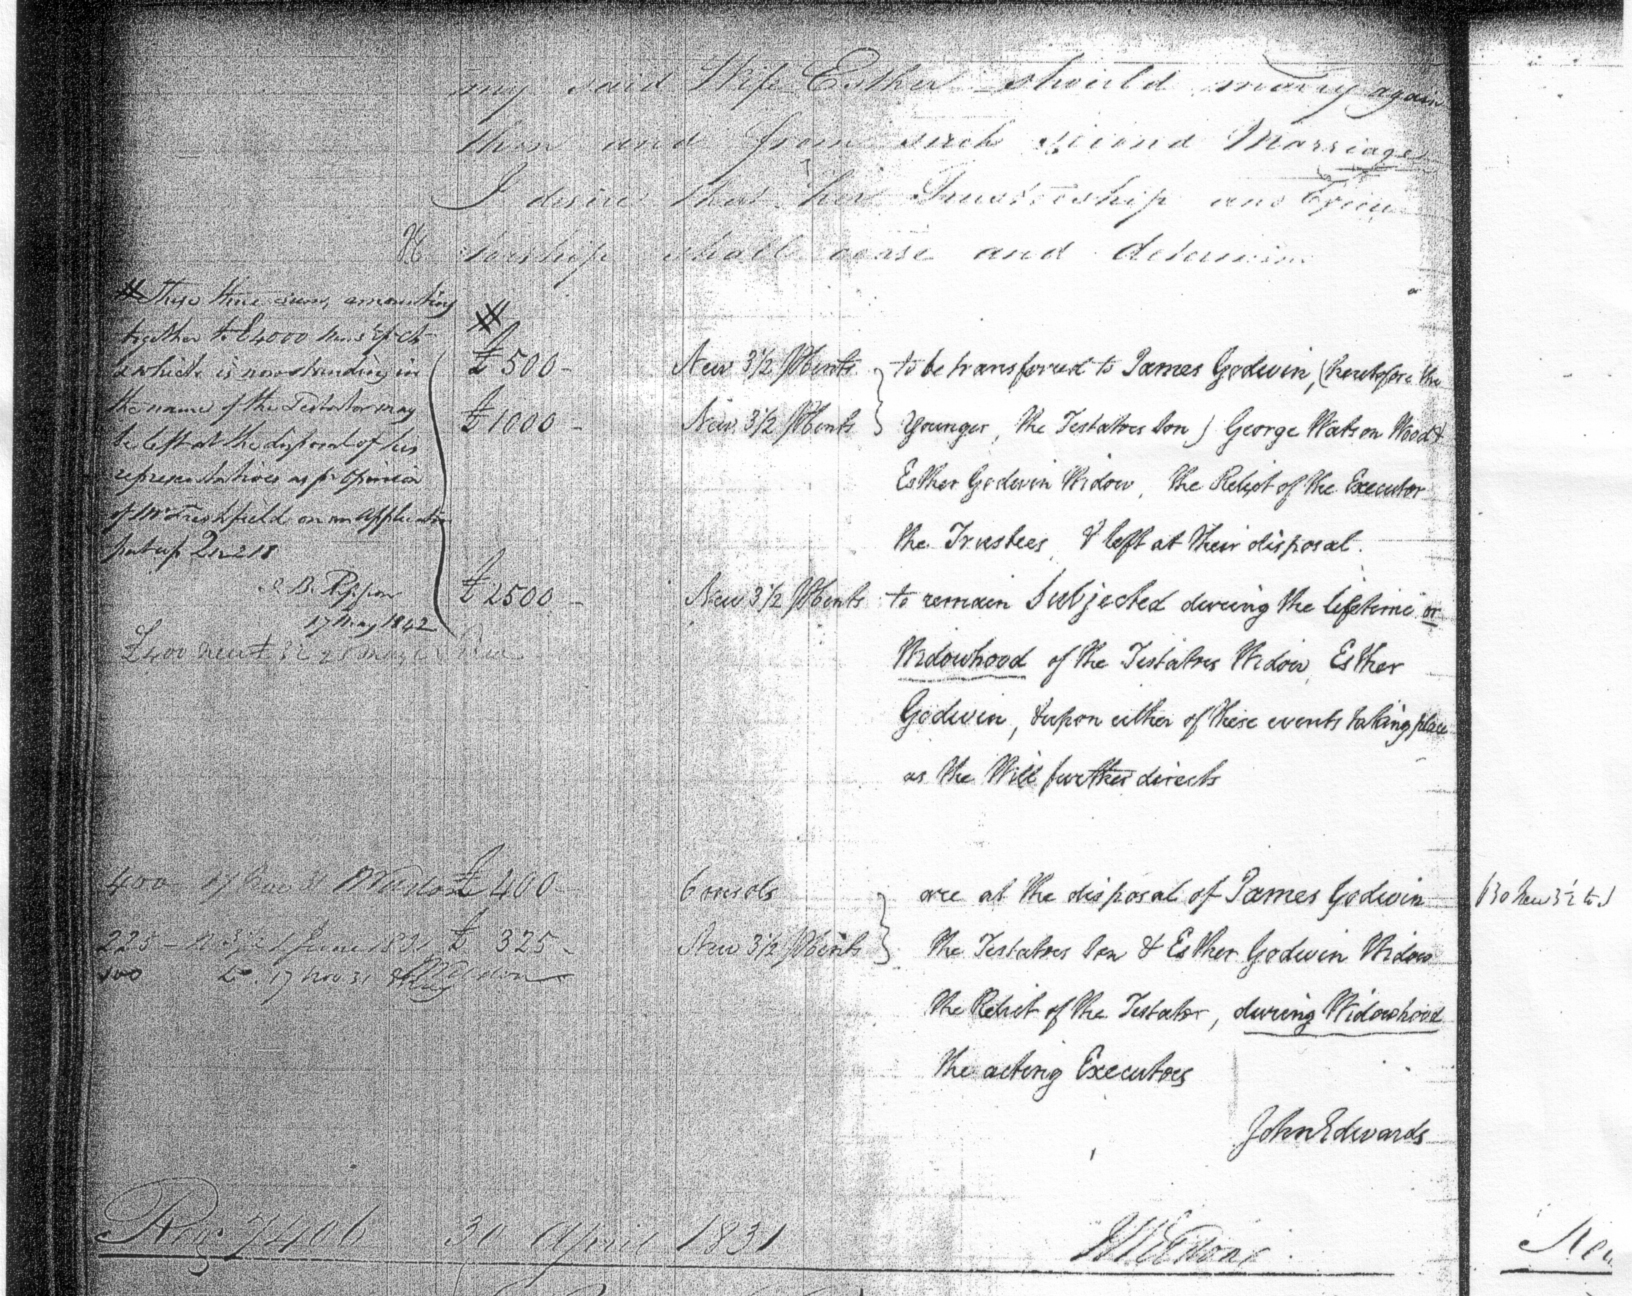 my said Wife Esther should marry again
then and from such second Marriage
I desire that her Trusteeship and Execu
torship shall cease and determine
# These three sums, amounting
together to £4000
& which is now standing in
the name of the Testator may
be left at the disposal of his
representatives as pr Opinion
of Mr Freshfield on an Application
put up
17 May 1842
£400
#
£500 - New 3 1/2 P Cents } to be transferred to James Godwin, (heretofore the
£1000 - New 3 1/2 P Cents } Younger, the Testators Son) George Watson Wood &
Esther Godwin Widow, the Relict of the Executor
the Trustees, & left at their disposal.
£2500 - New 3 1/2 P Cents to remain Subjected during the lifetime or
Widowhood of the Testators Widow, Esther
Godwin, & upon either of these events taking place
as the Will further directs
400 £400 - Consols } are at the disposal of James Godwin
225 - June 1831 £ 325 - New 3 1/2 P Cents } the Testators Son & Esther Godwin Widow
100 Do. 17 Nov 31
the Relict of the Testator, during Widowhood
the acting Executors
John Edwards
Reg 7406 30 April 1831